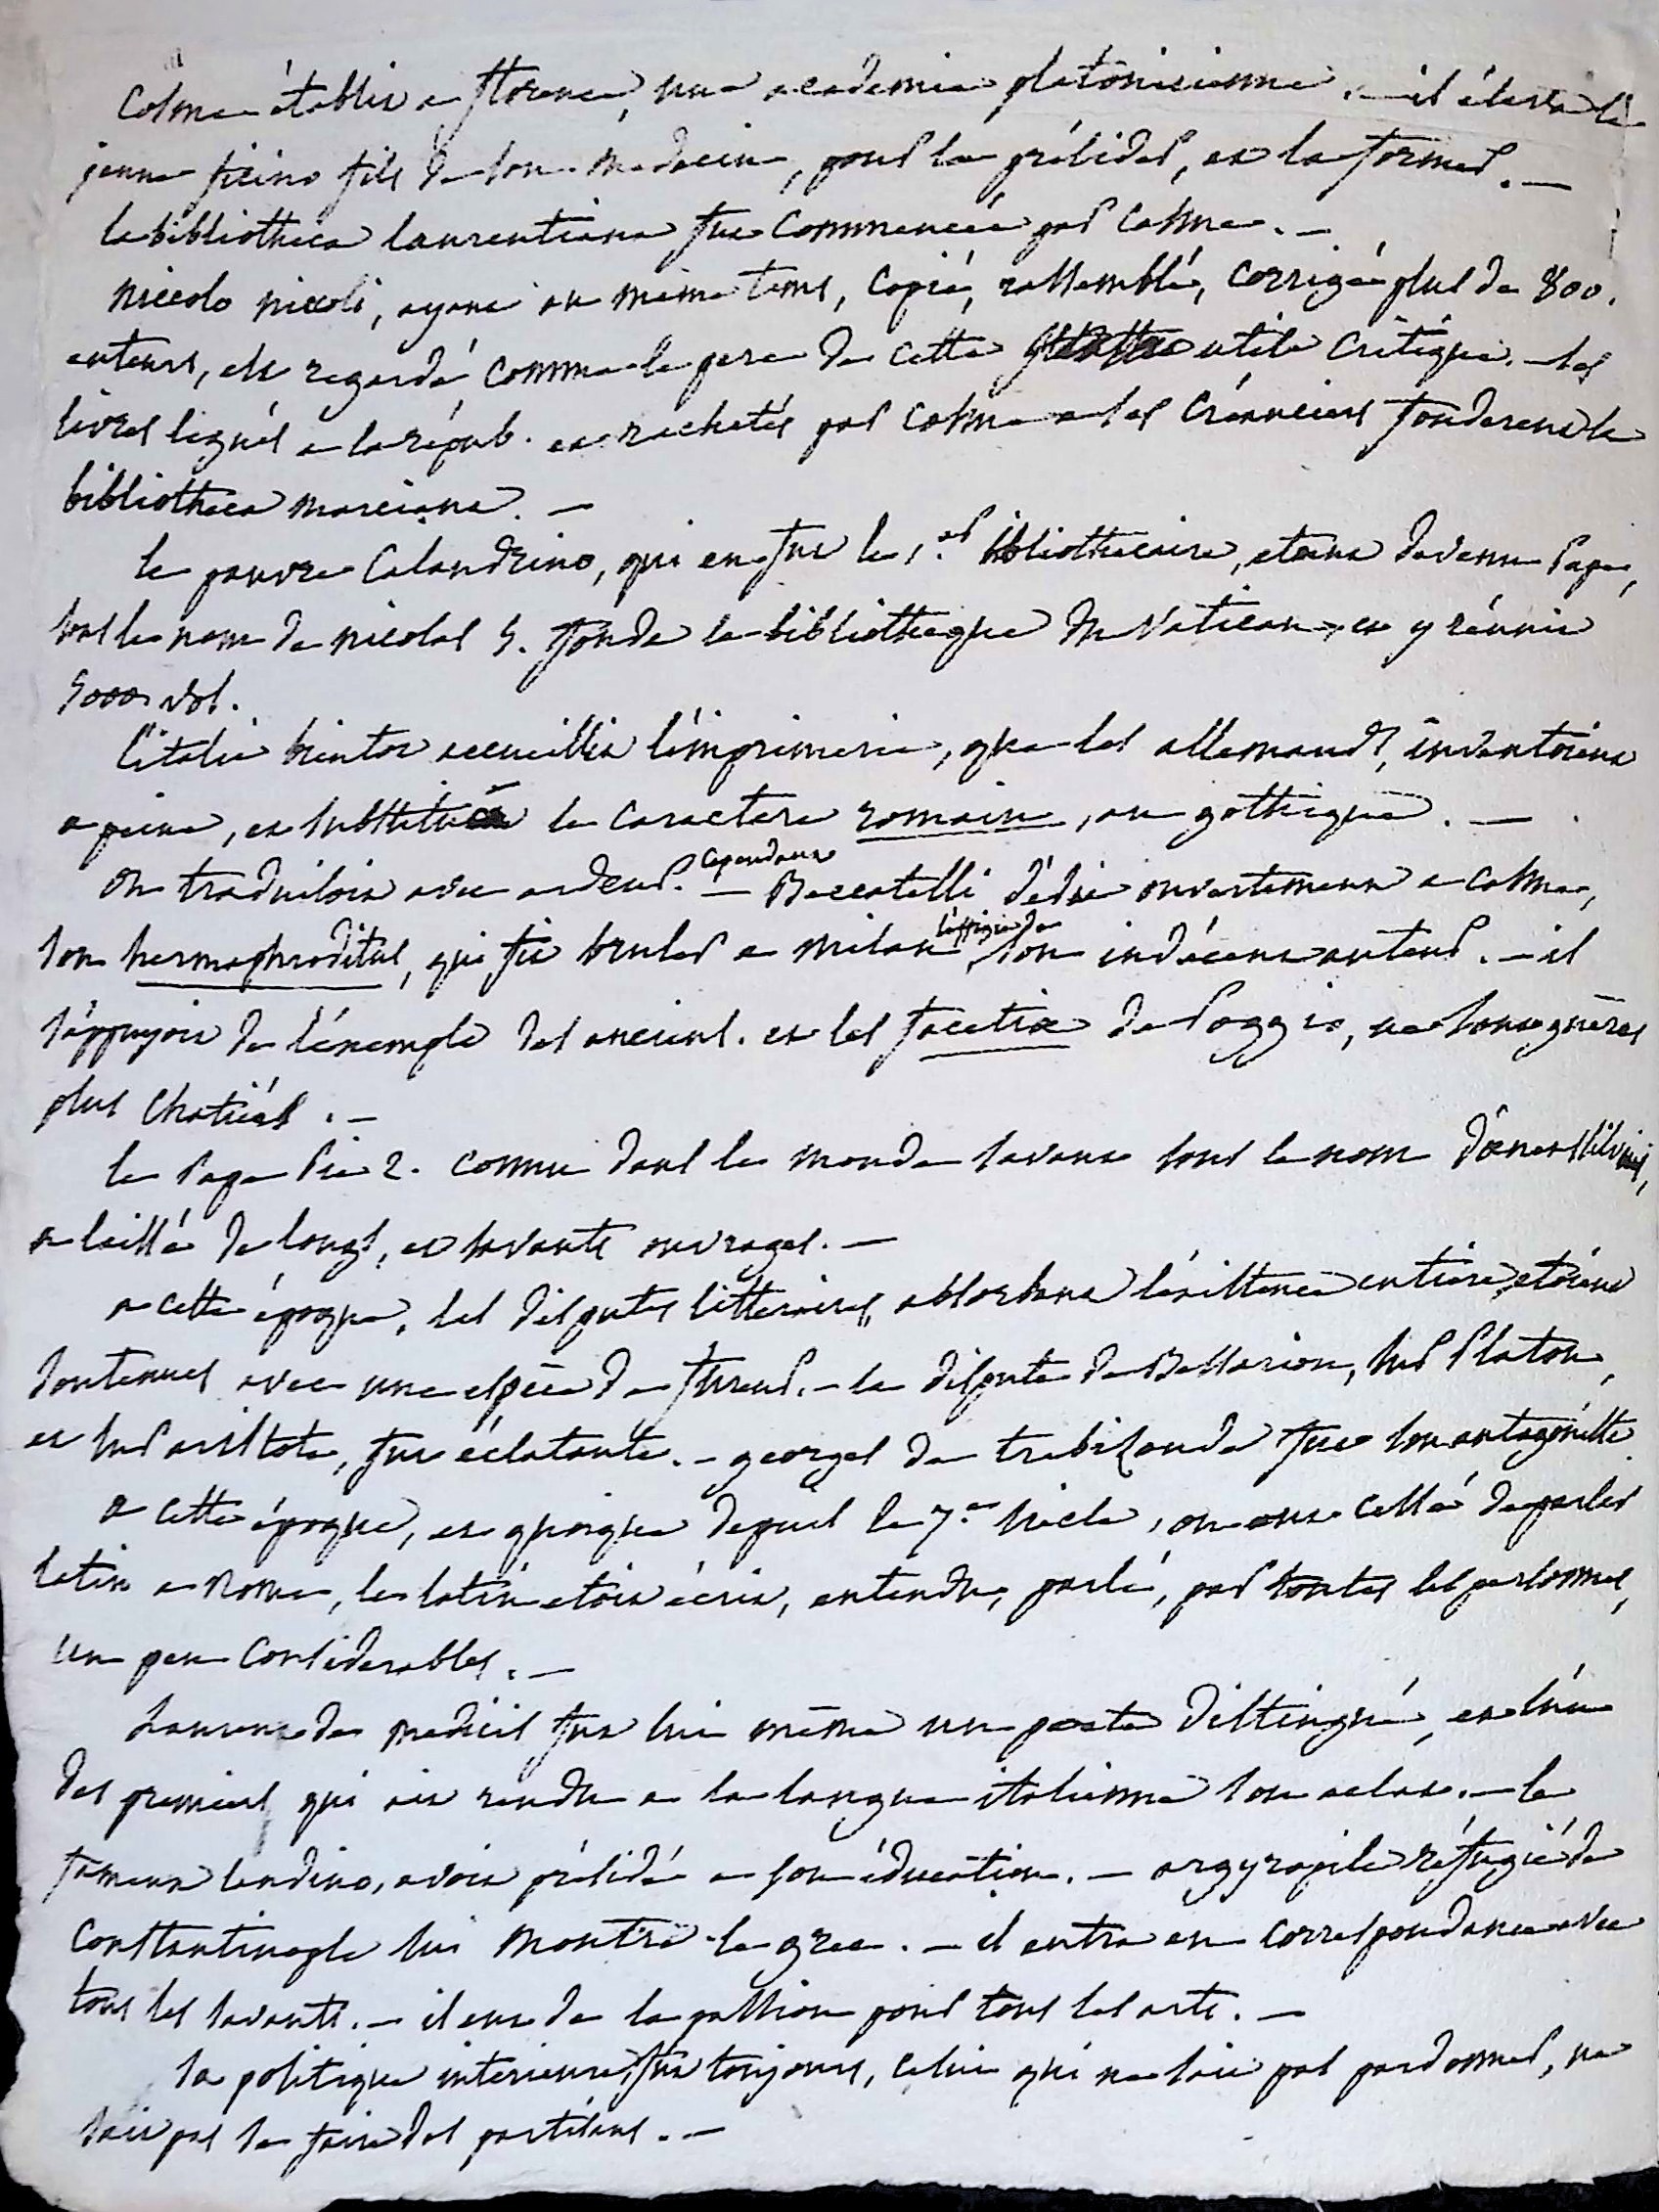 Cosme établit a florence, une academie platonicienne. – il éleva le
jeune ficino fils de son medecin, pour la présider, et la former. –
la bibliotheca laurentiana fut commencée par Cosme. –
niccolo niccoli, ayant en même tems, copié, rassemblé, corrigé plus de 800.
auteurs, est regardé comme le pere de cette utile critique. – les
livres légués a la répub. et rachetés par Cosme a ses créanciers fonderent la
bibliotheca marciana. –
le pauvre Calandrino, qui en fut le 1.er bibliothécaire, etant devenu Pape,
sous le nom de nicolas 5. fonda la bibliotheque du Vatican, et y réunit
5000 vol.
l'italie bientot accueillit l'imprimerie, que les allemands, inventoient
a peine, et substitua le caractere romain, au gothique. –
On traduisoit avec ardeur. – cependant Beccatelli dédie ouvertement a Cosme,
son hermaphroditus, qui fit bruler a milan l'effigie de son indécent auteur. – il
s'appuyoit de l'exemple des anciens. et les facetiæ de Poggio, ne sont gueres
plus chatiées. –
le Pape Pie 2. connu dans le monde savant sous le nom d'æneas silvius,
a laissé de longs, et savants ouvrages. –
a cette époque, les disputes litteraires, absorbant l'existence entiere, etoient
soutenues avec une espèce de fureur. – la dispute de Bessarion, sur Platon,
et sur aristote, fut éclatante. – georges de trebizonde fut son antagoniste.
a cette époque, et quoique depuis le 7.e siecle, on eut cessé de parler
latin a Rome, le latin etoit écrit, entendu, parlé, par toutes les personnes,
un peu considerables. –
Laurent de medicis fut lui même un poete distingué, et l'un
des premiers qui ait rendu a la langue italienne son eclat. – le
fameux landino, avoit présidé a son éducation. – argyropile réfugié de
Constantinople lui montra le grec. – il entra en correspondance avec
tous les savants. – il eut de la passion pour tous les arts. –
la politique interieure, fut toujours, celui qui ne sait pas pardonner, ne
sait pas se faire des partisans. –